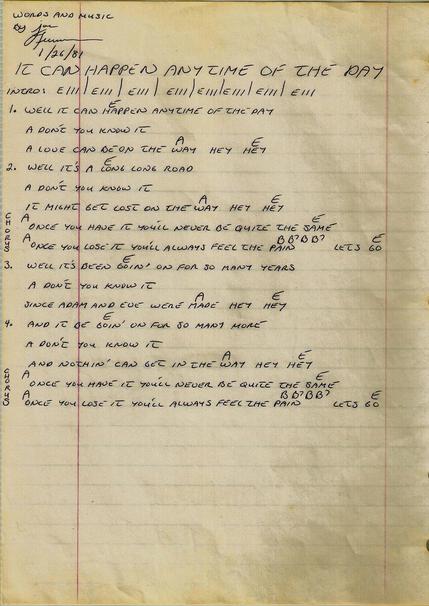 WORDS AND MUSIC
By
1/26/81
IT CAN HAPPEN ANYTIME OF THE DAY
INTRO: E/// | E/// | E/// | E/// | E/// | E/// | E/// | E///
E
1. WELL IT CAN HAPPEN ANYTIME OF THE DAY
A DON'T YOU KNOW IT
A E
A LOVE CAN BE ON THE WAY HEY HEY
E
2. WELL IT'S A LONG LONG ROAD
A DON'T YOU KNOW IT
A E
IT MIGHT GET LOST ON THE WAY HEY HEY
CHORUS
A E
ONCE YOU HAVE IT YOU'LL NEVER BE QUITE THE SAME
A B B7 B B7 E
ONCE YOU LOSE IT YOU'LL ALWAYS FEEL THE PAIN LETS GO
E
3. WELL IT'S BEEN GOIN' ON FOR SO MANY YEARS
A DON'T YOU KNOW IT
A E
SINCE ADAM AND EVE WERE MADE HEY HEY
E
4. AND IT BE GOIN' ON FOR SO MANY MORE
A DON'T YOU KNOW IT
A E
AND NOTHIN' CAN GET IN THE WAY HEY HEY
CHORUS
A E
ONCE YOU HAVE IT YOU'LL NEVER BE QUITE THE SAME
A B B7 B B7 E
ONCE YOU LOSE IT YOU'LL ALWAYS FEEL THE PAIN LETS GO